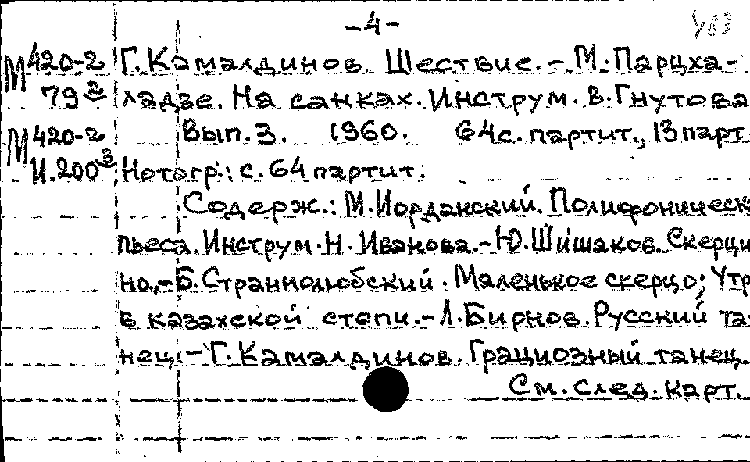 -4-
М 420-2 Г. Камалдинов. Шествие.- М. Парцха-
79 2 ладзе. На санках. Инструм. В. Гнутова
М 420-2 Вып. 3. 1960. 64с. партит., 13 парт
И.200 3 Нотогр.: с. 64 партит.
Содерж.: М. Иорданский. Полифоническ
пьеса. Инструм. Н. Иванова.- Ю. Шишаков. Скерци
но.- Б. Страннолюбский. Маленькое скерцо; Утр
в казахской степи.- Л. Бирнов. Русский та
нец.- Г. Камалдинов. Грациозный танец.
См. след. карт.